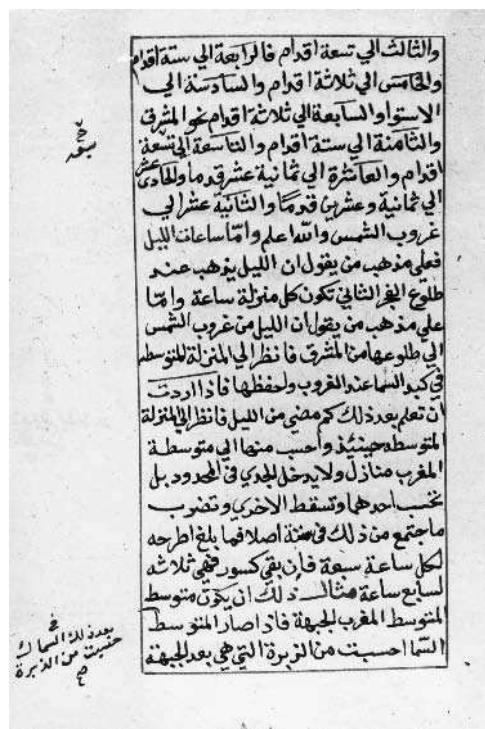 والثالث الي تسعة اقدام فالرابعة الي ستة اقدام
والخامس الي ثلاثة اقدام والسادسة الي
الاستوا والسابعة الي ثلاثة اقدام نحو المشرق
والثامنة الي ستة اقدام والتاسعة الي تسعة
اقدام والعاشرة الي ثمانية عشر قدما والحادي عشر
الي ثمانية وعشرين قدمًا والثانية عشر الي
غروب الشمس والله اعلم وامّا ساعات الليل
فعلي مذهب من يقول ان الليل يذهب عند
طلوع الفجر الثاني تكون كل منزلة ساعة وامّا
علي مذهب من يقول ان الليل من غروب الشمس
الي طلوعها من المشرق فانظر الي المنزلة المتوسطه
في كبد السما عند الغروب واحفظها فاذا اردت
ان تعلم بعد ذلك كم مضي من الليل فانظر الي المنزلة
المتوسطه حينيذ واحسب منها الي متوسطة
المغرب منازل ولا يدخل الجدي في المحدود بل
تحسب احدهما وتسقط الاخري وتضرب
ما جتمع من ذلك في اصلا فما بلغ اطرحه
لكل ساعة سبعة فان بقي كسور فهي ثلاثه
لسابع ساعة مثال ذلك ان يكون متوسط
المتوسط المغرب الجبهة فاذا صار المتوسط
السّما احسبت من الزبرة التي هي بعد الجبهة
سبعه
بعد ذلك السماك
حسبت من الزبرة